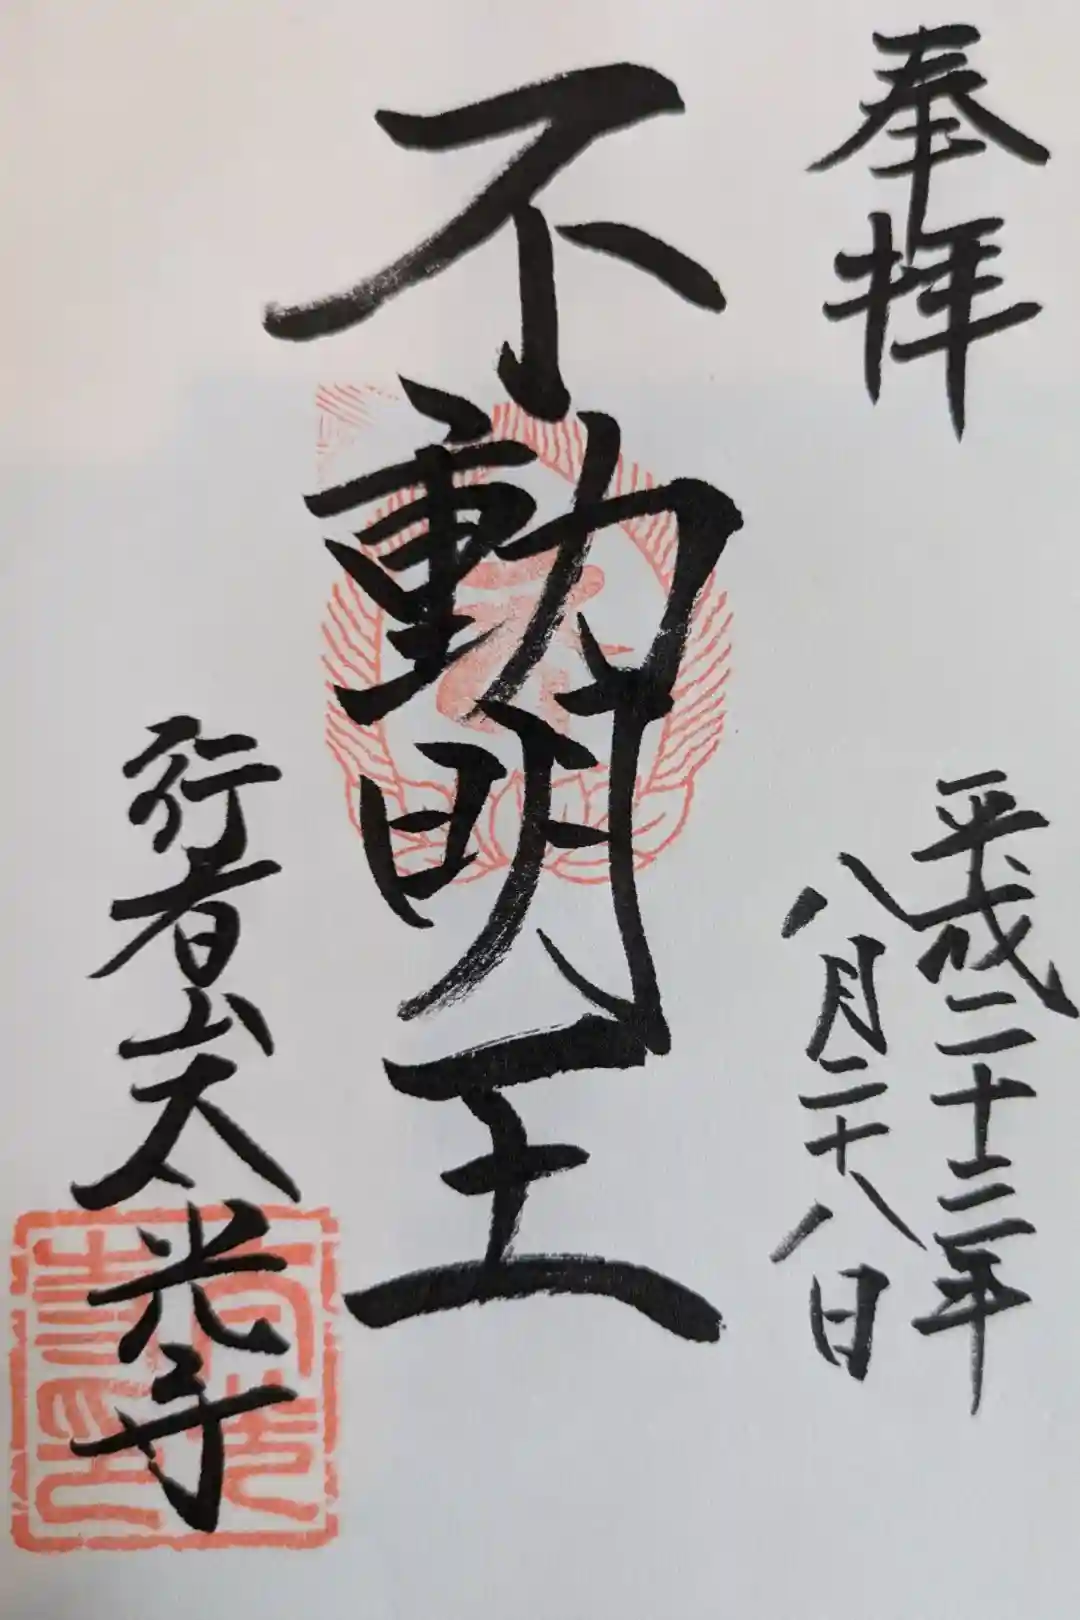 奉拝
平成二十三年
八月二十八日
不動明王
行者山太光寺